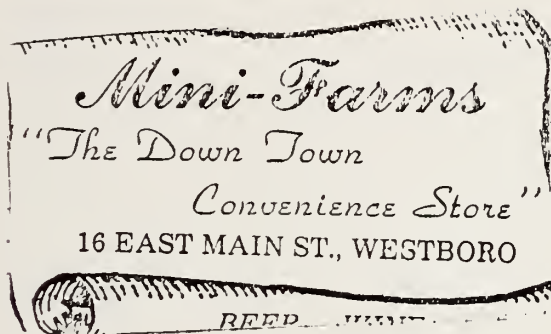 Mini-Farms
"The Down Town
Convenience Store"
16 EAST MAIN ST., WESTBORO
BEER